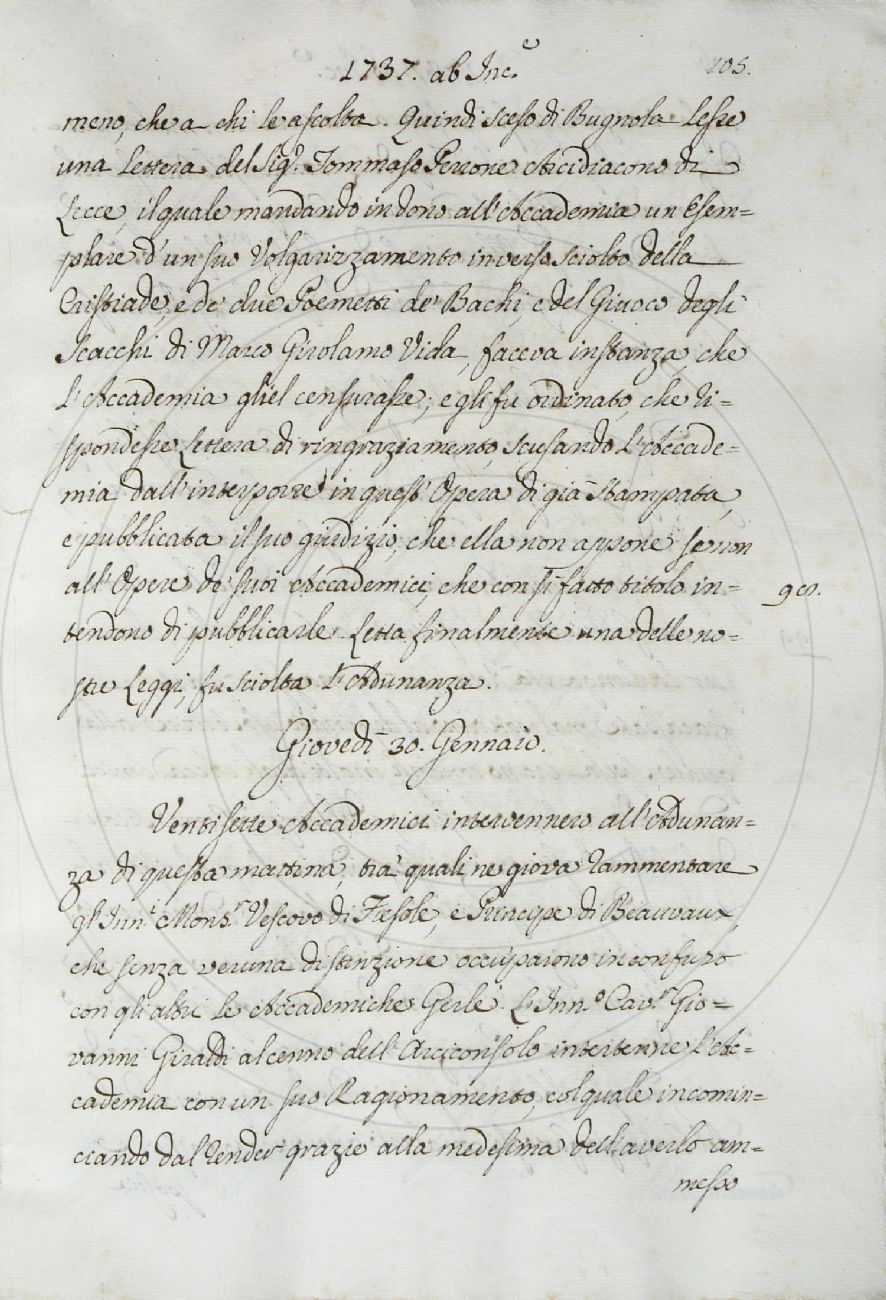 1737. ab Inc.e 105.
meno, che a chi le ascolta. Quindi sceso di Bugnola lesse
una lettera del Sig.r Tommaso Perrone Arcidiacono di
Lecce, il quale mandando in dono all'Accademia un Esem=
plare d'un suo Volgarizzamento in verso sciolto della
Cristiade, e de' due Poemetti de' Bachi, e del Giuoco degli
Scacchi di Marco Girolamo Vida, faceva instanza, che
l'Accademia gliel censurasse; e gli fu ordinato, che ri=
spondesse lettera di ringraziamento, scusando l'Accade=
mia dall'interporre in quest'Opera di già stampata,
e pubblicata il suo giudizio, che ella non appone se non
all'Opere de' suoi Accademici, che con sì fatto titolo in=
tendono di pubblicarle. Letta finalmente una delle no=
stre Leggi, fu sciolta l'Adunanza.
Giovedì 30. Gennaio.
Ventisette Accademici intervennero all'Adunan=
za di questa mattina, tra' quali ne giova rammentare
gl'Inn.i Mons.r Vescovo di Fiesole, e Principe di Beauvaux,
che senza veruna distinzione occuparono in confuso
con gli altri le Accademiche Gerle. L'Inn.o Cav.r Gio=
vanni Giraldi al cenno dell'Arciconsolo intertenne l'Ac=
cademia con un suo Ragionamento, col quale incomin=
ciando dal render grazie alla medesima dell'averlo am=
messo